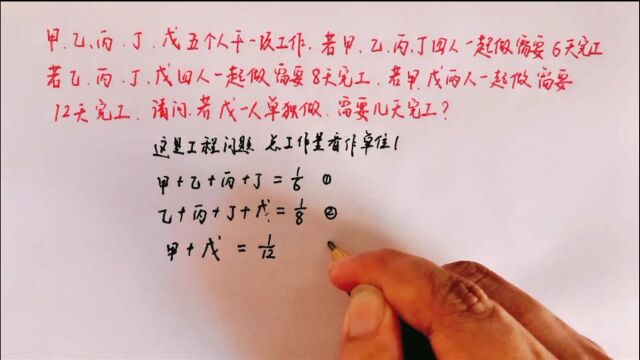 甲、乙、丙、丁、戊五个人干一项工作,若甲、乙、丙、丁四人一起做需要6天完工
若乙、丙、丁、戊四人一起做需要8天完工.若甲、戊两人一起做需要
12天完工.请问.若戊一人单独做.需要几天完工?
这是工程问题 总工作量看作单位1
甲+乙+丙+丁=1/6 ①
乙+丙+丁+戊=1/8 ②
甲+戊=1/12